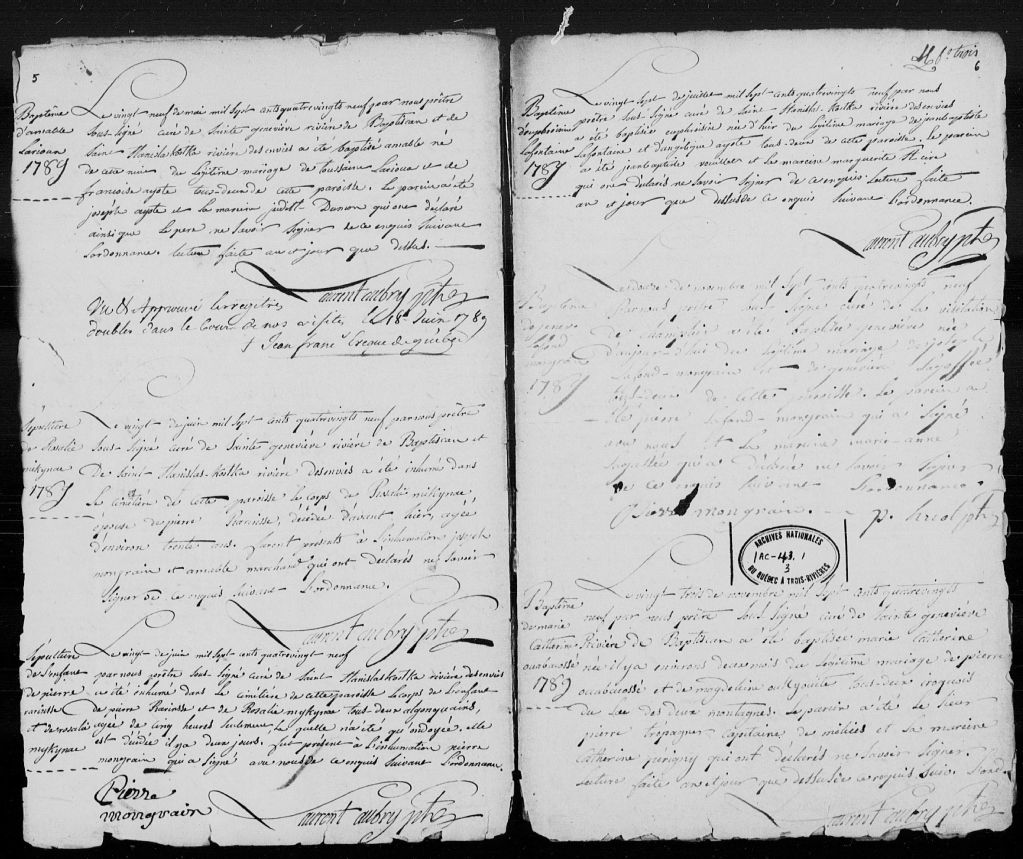 5
Baptême
d'amable
Lariou
1789
Le vingt neuf de mai mil sept cents quatrevingts neuf par nous prêtre
sous-signé curé de Sainte genevieve riviére de Baptiscan et de
Saint-Stanislas Kostka riviére des envies a été baptisé amable né
de cete nuit du légitime mariage de toussaint Lariou et de
francoise ayote tous-deux de cette paroisse. Le parein a été
joseph ayote et la mareine judith Dumon qui ont déclaré
ainsi que le pere ne savoir signer de ce enquis suivant
l'ordonnance. lecture faite an et jour que dessus.
Laurent aubry ptre
Vu & Approuvé le registre
doubles dans le Cours de nos visites le 18 Juin 1789
† Jean franc Eveque de quebec
sépulture
de Rosalie
mikynac
1789
Le vingt de juin mil sept cents quatrevingts neuf par nous prêtre
sous-signé curé de Sainte genevieve riviére de Baptiscan et
De Saint-Stanislas-Kostka riviére des envies a été inhumé dans
le cimitiére de cete paroisse le corps de Rosalie mikynac
épouse de pierre, décédée d'avant hier, agée
d'environ trente ans. furent présents à l'inhumation joseph
mongrain et amable marchand qui ont déclarés ne savoir
signer de ce enquis suivant l'ordonnance.
Laurent Aubry ptre
Sépulture
de l'enfant
de pierre
et de rosalie
mykynac
Le vingt de juin mil sept cents quatrevingt neuf
par nous prêtre sous signé curé de Saint Stanislas Kostka riviére des envies
a été inhumé dans le cimitiére de cette paroisse le corps de l'enfant
de pierre et de Rosalie mykynac tous-deux algonquains
agée de cinq heures seulement la quelle n'a été que ondoyée. elle
est décédée il y a deux jours. fut présent à l'inhumation pierre
mongrain qui a signé avec nous de ce enquis suivant l'ordonnance.
Pierre
mongrain
Laurent aubry ptre
6
Baptême
d'euphrosine
Lafontaine
1789
Le vingt sept de juillet mil sept cents quatrevingts neuf par nous
prêtre sous signé curé de Saint Stanislas-Kostka riviére des envies
a été baptisée euphrosine née d'hier du légitime mariage de jean baptiste
Lafontaine et d'angelique ayote tous-deux de cette paroisse. le parein
a été jean baptiste et la mareine marguerite
qui ont déclarés ne savoir signer de ce enquis. lecture faite
an et jour que dessus de ce enquis suivant l'ordonnance.
Laurent aubry ptre
Baptême
de genev
lafond
mongrain
1789
de novembre mil sept cents quatrevingts neuf
Par nous prêtre sous signé curé de la visitation
de champlain a été baptisée genevieve née
d'aujourd'hui du légitime mariage de
Lafond-mongrain et de genevieve
tous-deux de cette paroisse. Le parein a
été pierre Lafond-mongrain qui a signé
avec nous et la mareine marie-anne
qui a déclaré ne savoir signer
de ce enquis suivant l'ordonnance.
Pierre mongrain. p. ptre
ARCHIVES NATIONALES
AC-43.1
3
DU QUÉBEC À TROIS-RIVIÈRES
Baptême
de marie
Catherine
ouabucossé
1789
Le vingt trois de novembre mil sept cents quatrevingts
neuf par nous prêtre sous signé curé de sainte genevieve
Riviére de Baptiscan a été baptisée marie Catherine
née il y a environs deux mois du légitime mariage de pierre
ouabucossé et de magdeleine tous-deux iroquois
du Lac des deux montagnes. le parein a été le sieur
pierre trepagner Capitaine de milices et la mareine
Catherine périgny qui ont déclarés ne savoir signer.
lecture faite an et jour que dessus de ce enquis suiv. l'ord.
Laurent aubry ptre